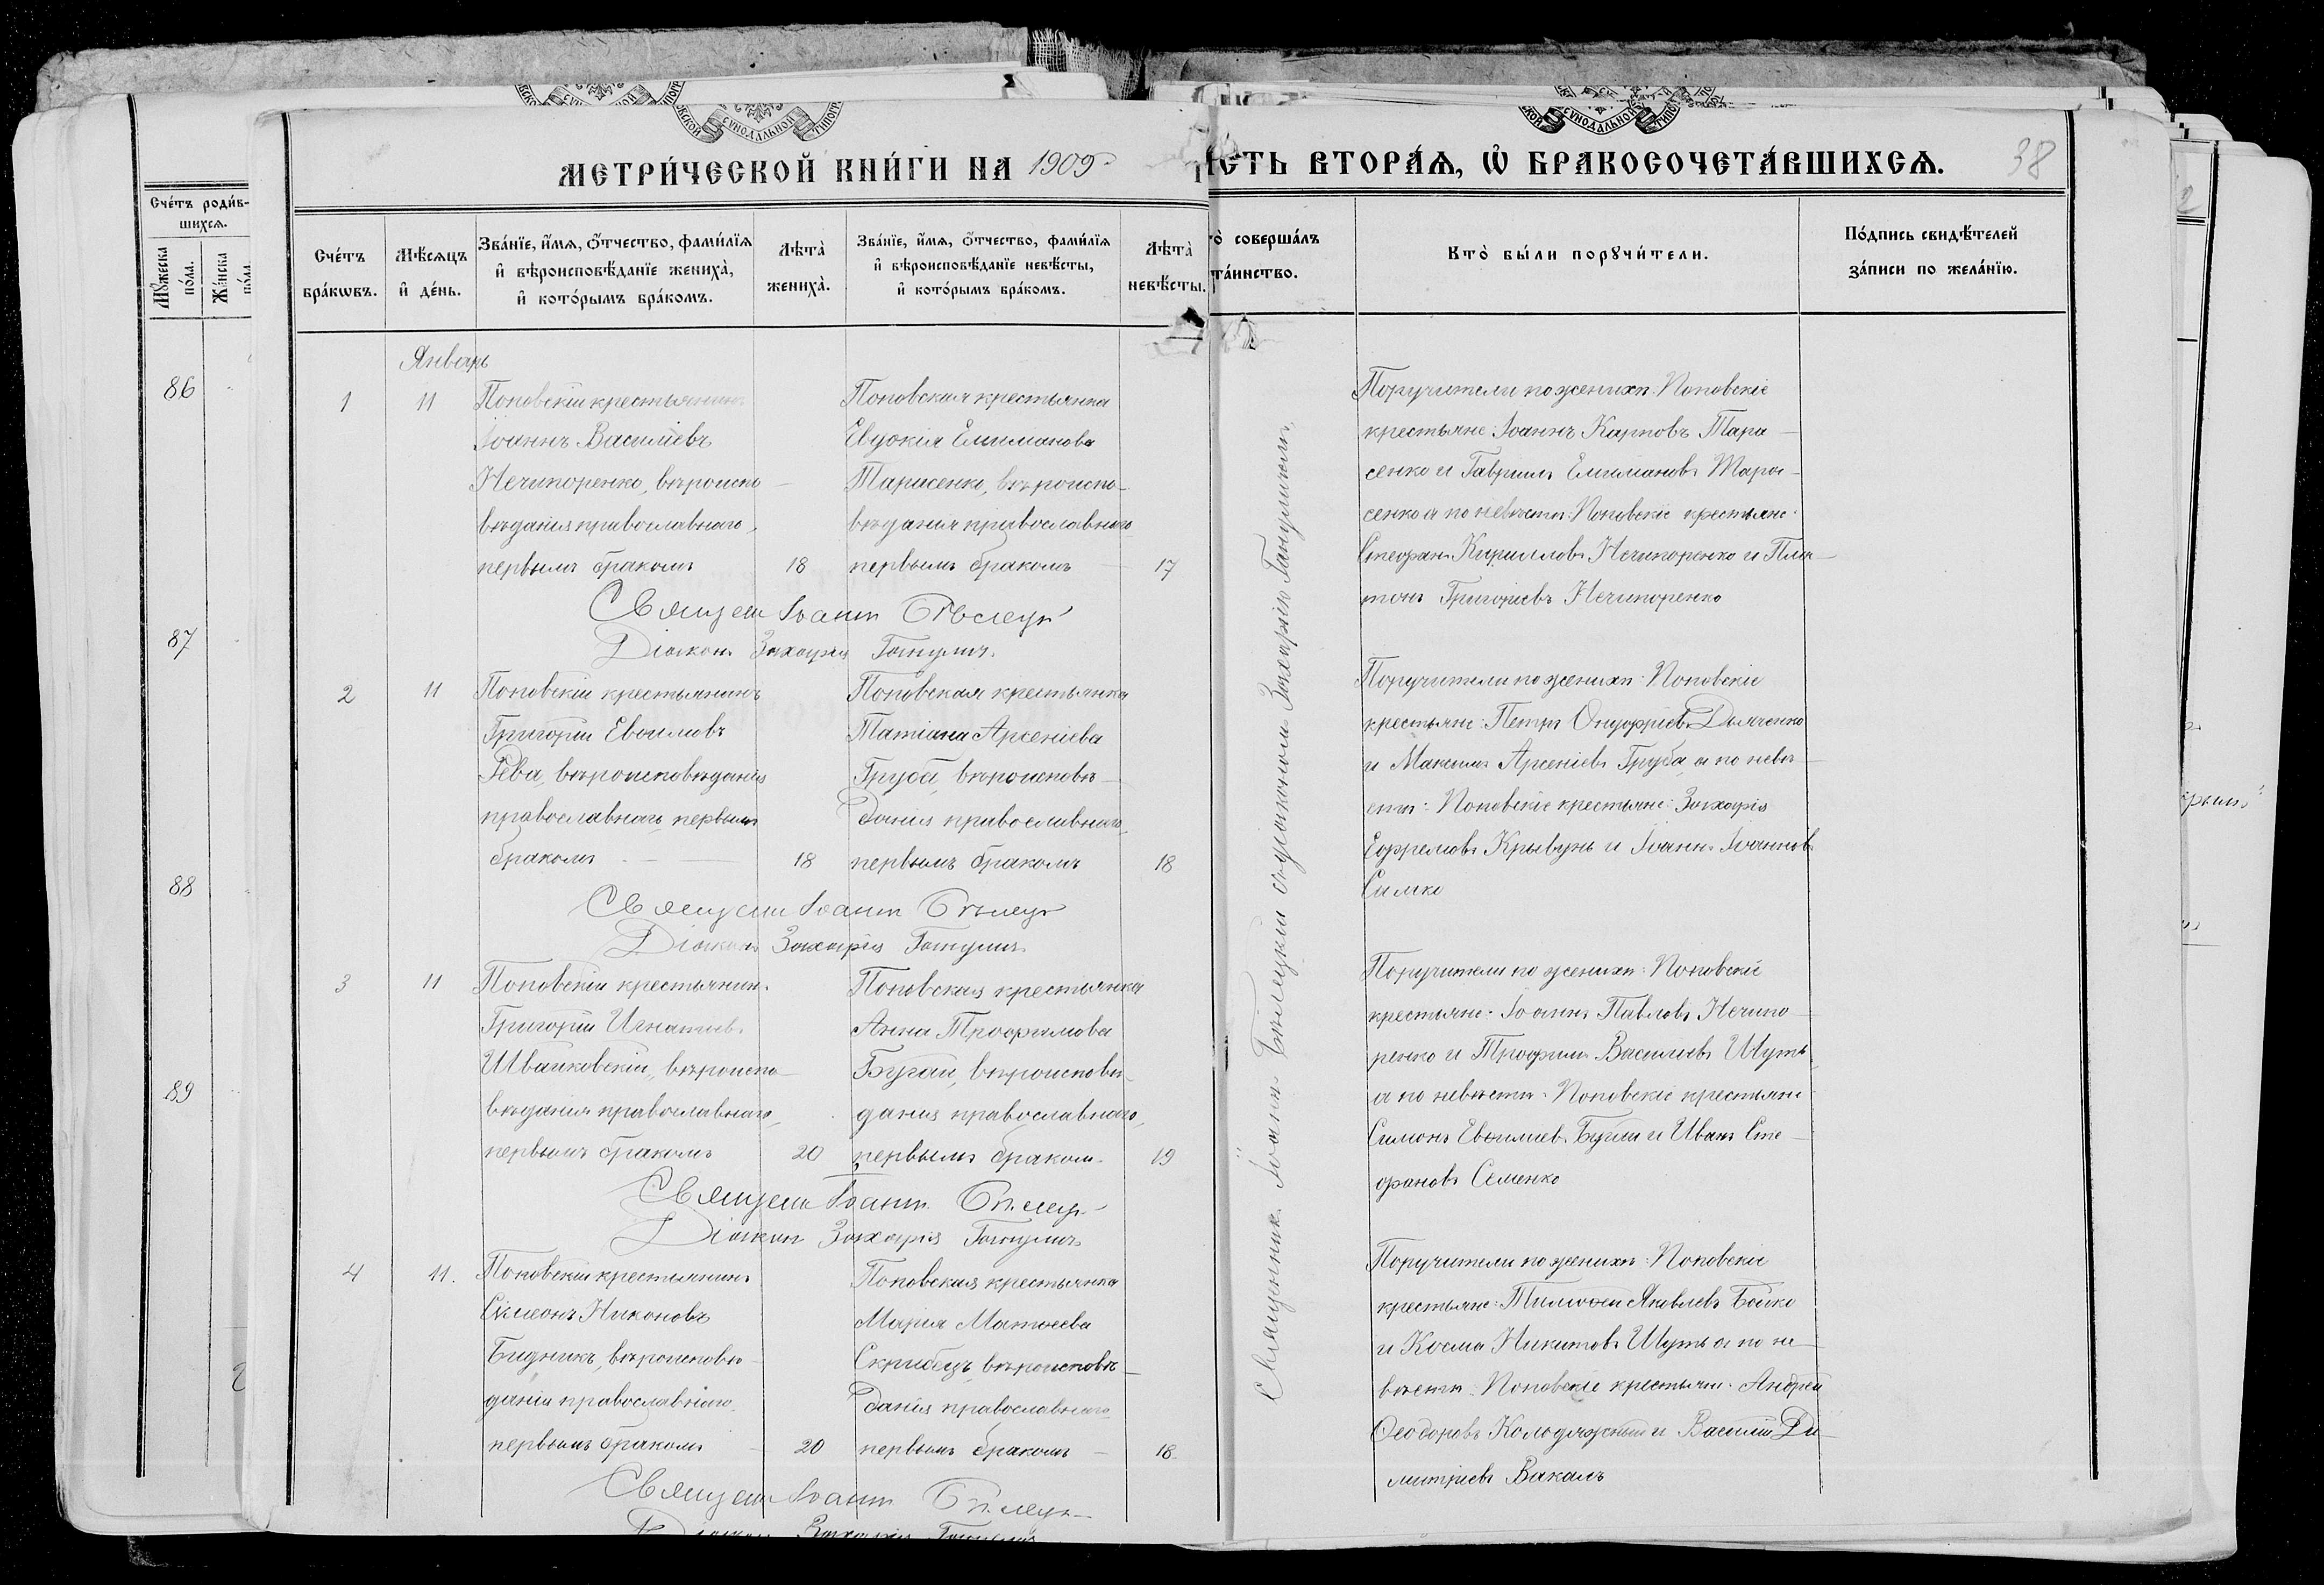 МЕТРИ́ЧЕСКОЙ КНИ́ГИ НА 1909
СТЬ ВТОРА́Ѧ, Ѽ БРАКОСОЧЕТА́ВШИХСѦ.
38
Сче́тъ роди́в-
шихсѧ.
Мꙋ́жеска
по́ла.
Же́нска
по́ла.
86
87
88
89
Сче́тъ
бра́кѡвъ.
Мѣ́сѧцъ
и҆ де́нь.
Зва́нїе, и҆́мѧ, ѻ҆́тчество, фами́лїѧ
и҆ вѣроисповѣ́данїе жениха̀,
и҆ кото́рымъ бра́комъ.
Лѣта̀
жениха̀.
Зва́нїе, и҆́мѧ, ѻ҆́тчество, фами́лїѧ
и҆ вѣроисповѣ́данїе невѣ́сты,
и҆ кото́рымъ бра́комъ.
Лѣта̀
невѣ́сты.
соверша́лъ
та́инство.
Кто̀ бы́ли порꙋчи́тели.
По́дпись свидѣ́телей
за́писи по жела́нїю.
Январь
1
11
Поповскій крестьянинъ
Іоаннъ Василіевъ
Нечипоренко, вѣроиспо-
вѣданія православнаго,
первымъ бракомъ
18
Поповская крестьянка
Евдокія Емиліанова
Тарасенко, вѣроиспо-
вѣданія православнаго
первымъ бракомъ
17
Поручители по женихѣ: Поповскіе
крестьяне: Іоаннъ Карповъ Тара-
сенко и Гавріилъ Емиліановъ Тара-
сенко а по невѣстѣ: Поповскіе крестьяне:
Стефанъ Кирилловъ Нечипоренко и Пла-
тонъ Григоріевъ Нечипоренко
Священ Іоаннъ Бѣлец
Діаконъ Захарія
2
11
Поповскій крестьянинъ
Григорій Евѳимовъ
Рева, вѣроисповѣданія
православнаго, первымъ
бракомъ
18
Поповская крестьянка
Татіана Арсеніева
Груба, вѣроисповѣ-
данія православнаго,
первымъ бракомъ
18
Поручители по женихѣ: Поповскіе
крестьяне: Петръ Онуфріевъ Дьяченко
и Максимъ Арсеніевъ Груба, а по невѣ-
стѣ: Поповскіе крестьяне: Захарія
Ефремовъ Крывунь и Іоаннъ Іоанновъ
Симко
Священ Іоаннъ Бѣлец
Діаконъ Захарія
3
11
Поповскій крестьянинъ
Григорій Игнатіевъ
Швайковскій, вѣроиспо-
вѣданія православнаго,
первымъ бракомъ
20
Поповская крестьянка
Анна Трофимова
Бугай, вѣроисповѣ-
данія православнаго,
первымъ бракомъ
19
Поручители по женихѣ: Поповскіе
крестьяне: Іоаннъ Павловъ Нечипо-
ренко и Трофимъ Василіевъ Шуть,
а по невѣстѣ: Поповскіе крестьяне
Симонъ Евѳиміев Бугай и Иванъ Сте-
фановъ Семенко
Священ Іоаннъ Бѣлец
Діаконъ Захарія
4
11.
Поповскій крестьянинъ
Симеонъ Никоновъ
Бидникъ, вѣроисповѣ-
данія православнаго,
первымъ бракомъ
20
Поповская крестьянка
Марія Матѳеева
Скрибецъ, вѣроисповѣ-
данія православнаго
первымъ бракомъ
18
Поручители по женихѣ: Поповскіе
крестьяне: Тимоѳей Яковлевъ Бойко
и Косма Никитовъ Шуть а по не-
вѣстѣ: Поповскіе крестьяне: Андрей
Ѳеодоровъ Колодяжный и Василій Ди-
митріевъ Вакалъ
Священ Іоаннъ Бѣлец
Діаконъ Захарія
Священникъ Іоаннъ Бѣлецкій съ діакономъ Захаріею